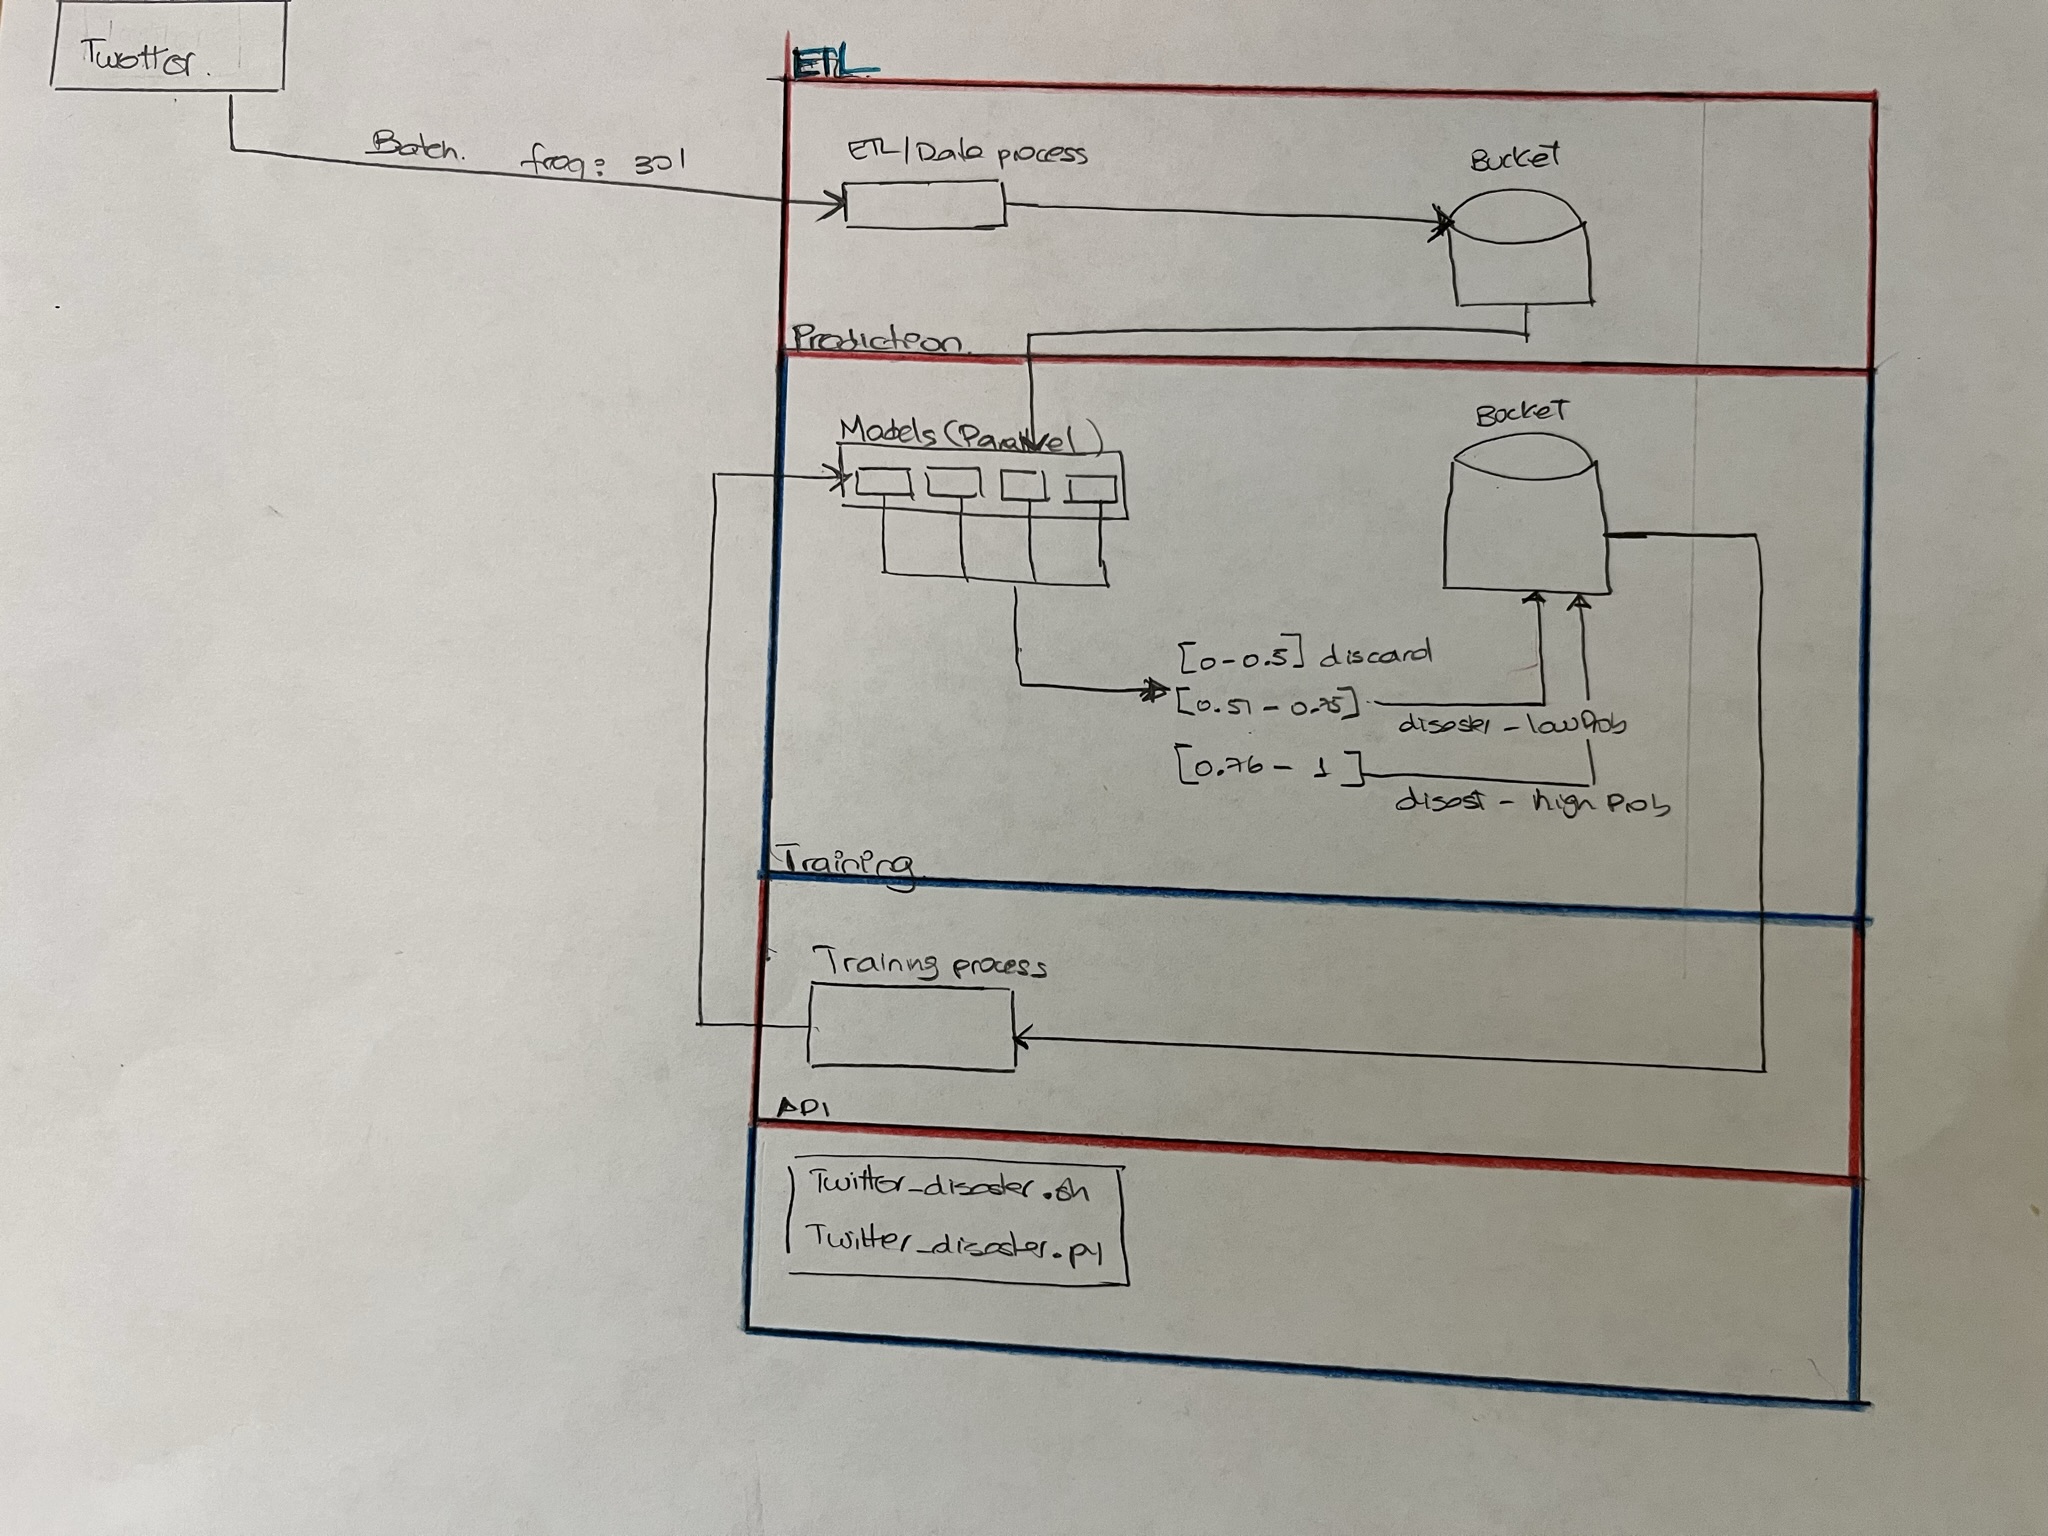 Twitter.
ETL
Batch. freq: 30'
ETL/Data process
Bucket
Prediction.
Models (Parallel)
Bucket
[0-0.5] discard
[0.51 - 0.75]
disaster - low Prob
[0.76 - 1]
disast - high Prob
Training.
Training process
API
Twitter_disaster.sh
Twitter_disaster.py